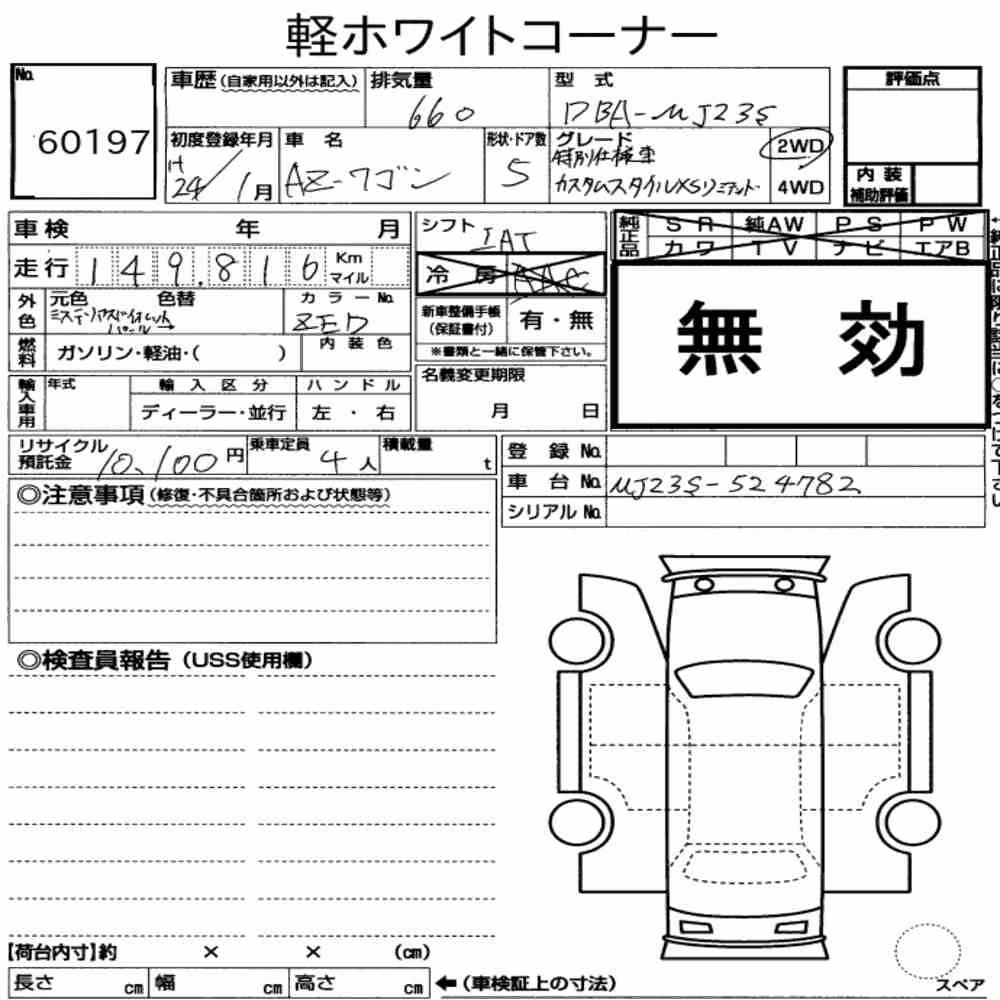 軽ホワイトコーナー
No.
60197
車歴(自家用以外は記入)
排気量
660
型 式
DBA-MJ23S
評価点
初度登録年月
H
24/1月
車 名
AZ-ワゴン
形状・ドア数
5
グレード
特別仕様車
カスタムスタイルXSリミテッド
2WD
4WD
内 装
補助評価
車検 年 月
走行 149.816 Km
マイル
シフト IAT
冷 房 AAC
純正品
SR 純AW PS PW
カワ TV ナビ エアB
外色
元色 色替
ミステリアスバイオレット
パール→
カラーNo.
ZED
新車整備手帳
(保証書付)
有・無
※書類と一緒に保管下さい。
無 効
燃料
ガソリン・軽油・( )
内 装 色
輸入車用
年式
輸 入 区 分
ハ ン ド ル
ディーラー・並行
左 ・ 右
名義変更期限
月 日
リサイクル
預託金 10,100円
乗車定員
4人
積載量
t
登 録 No.
車 台 No. MJ23S-524782
シリアル No.
◎注意事項(修復・不具合箇所および状態等)
◎検査員報告(USS使用欄)
【荷台内寸】約 × × (cm)
長さ cm 幅 cm 高さ cm ←(車検証上の寸法)
スペア